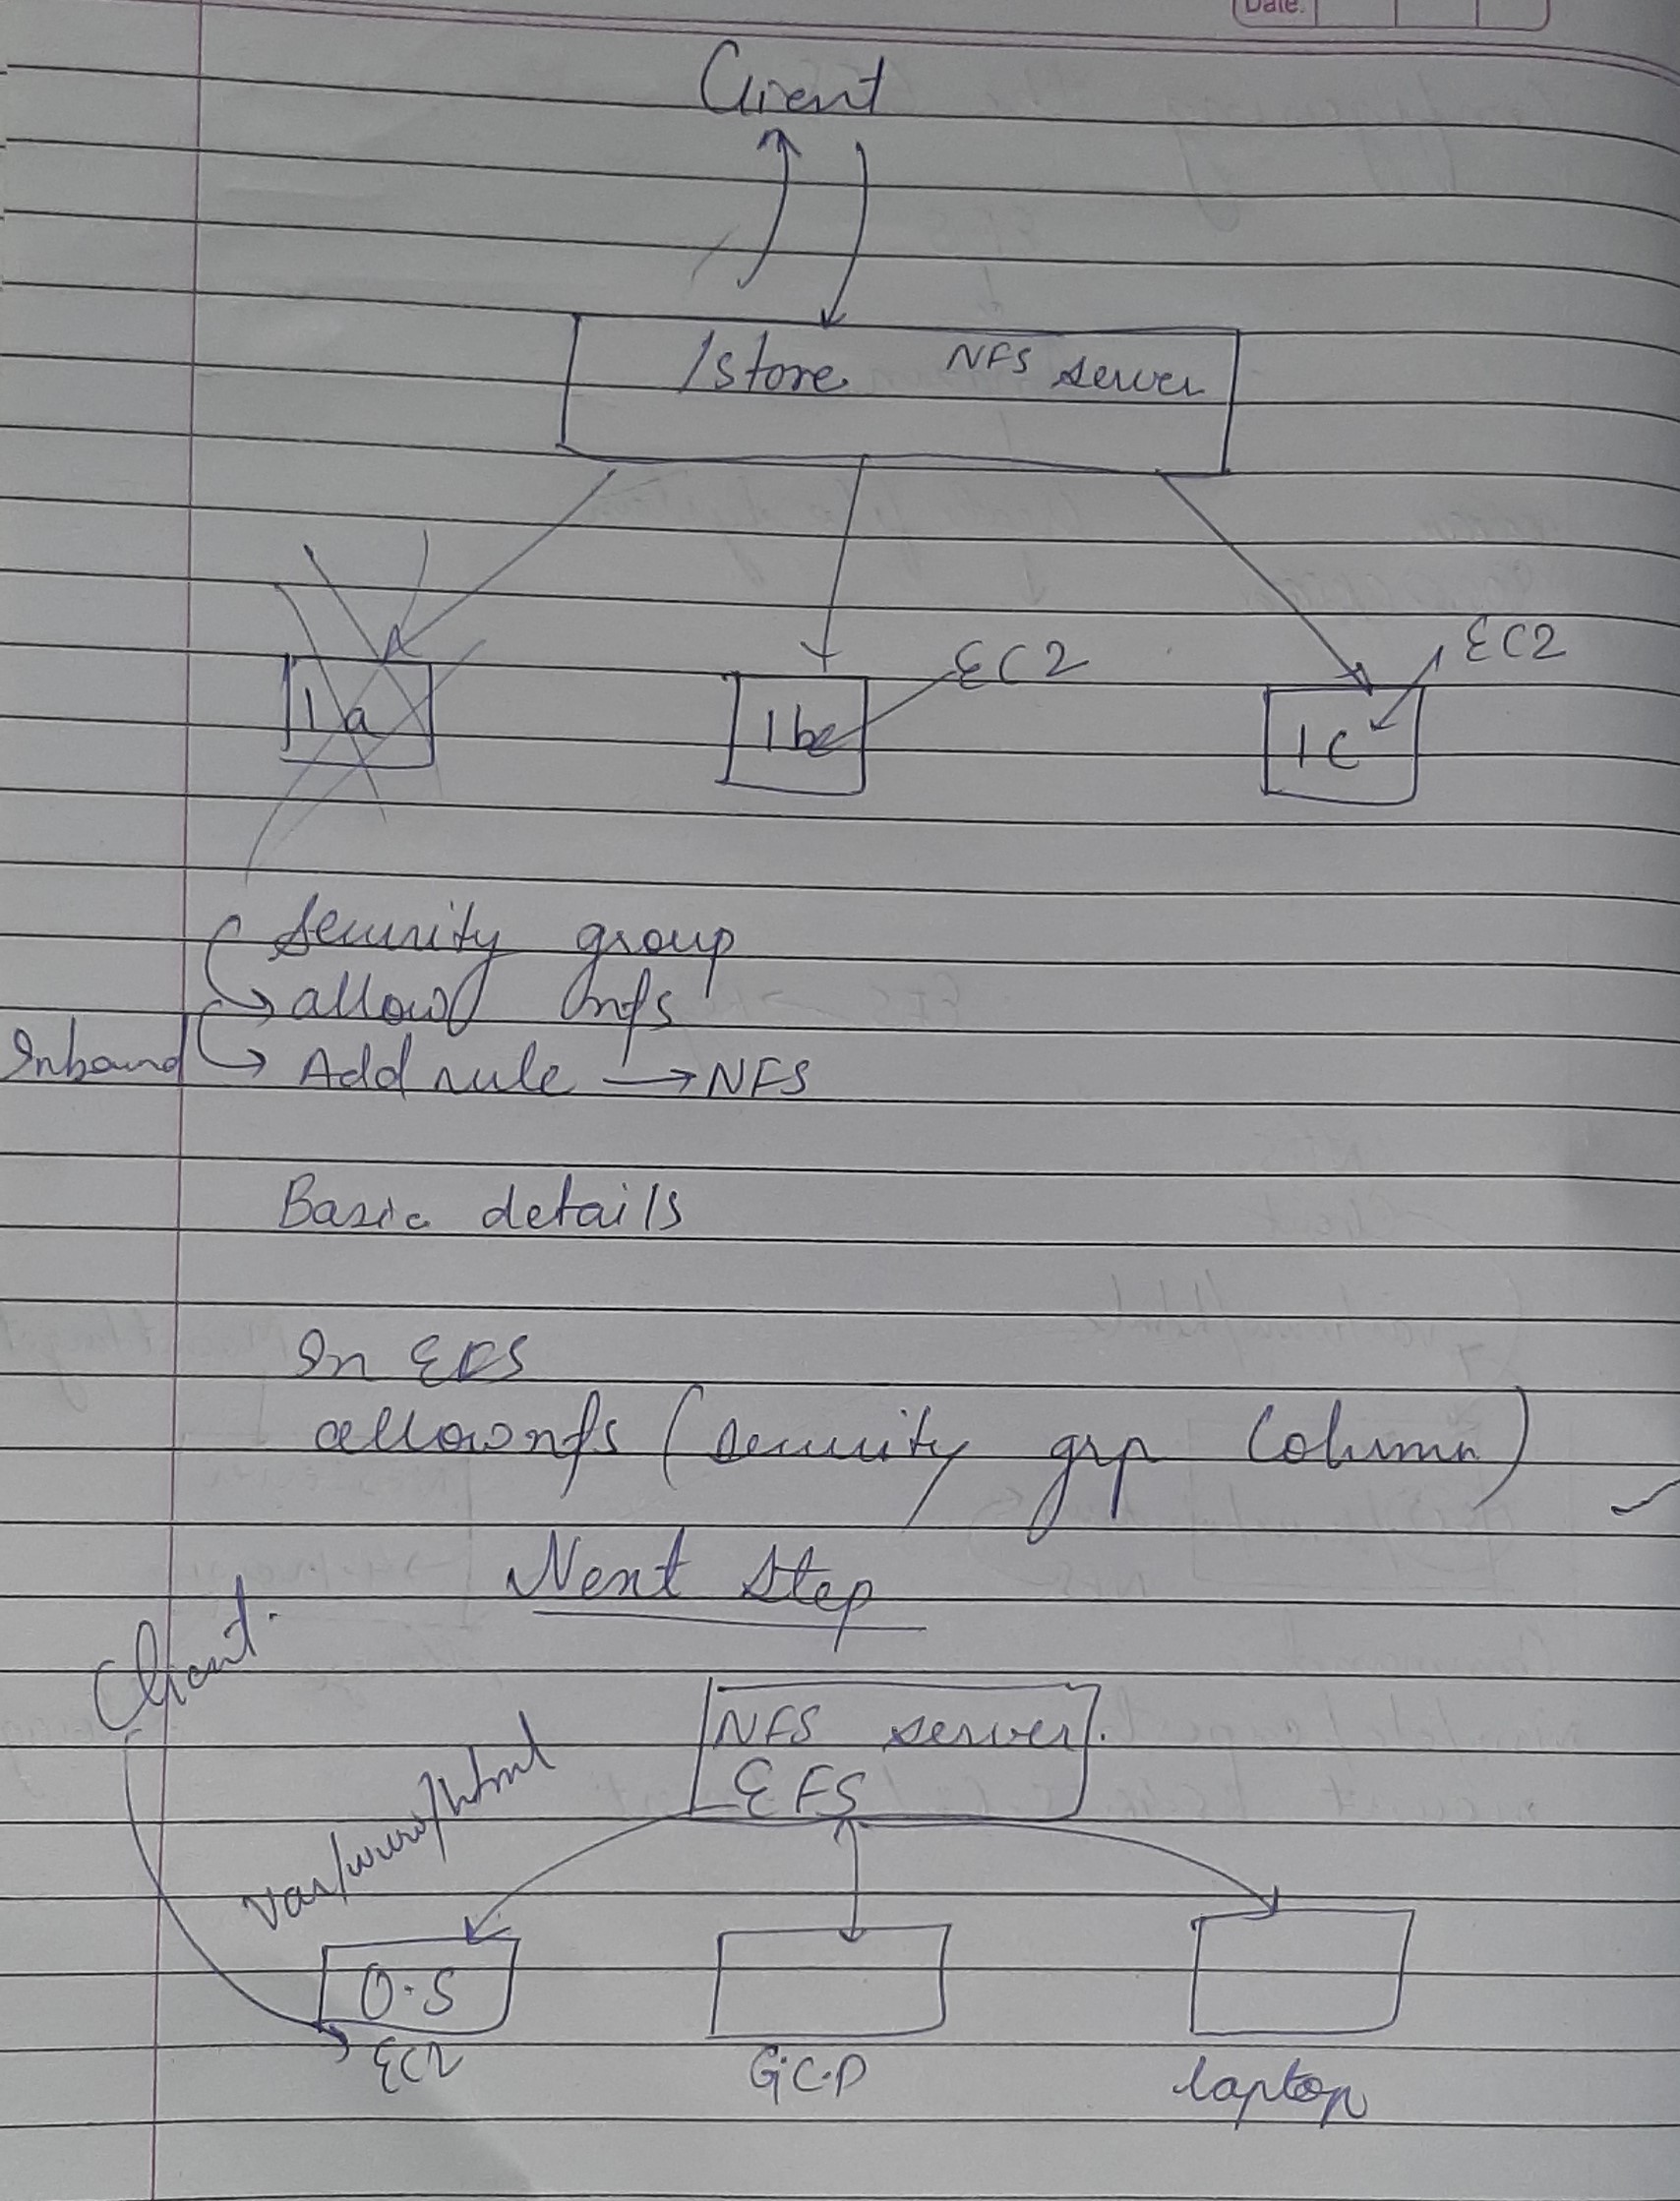 Date.
Client
/store NFS server
EC2
EC2
1a
1b
1c
Security group
allow nfs
Inbound Add rule → NFS
Basic details
In EFS
allownfs (security grp Column)
Next Step
Client
NFS server
EFS
var/www/html
O.S
EC2
G.C.P
laptop